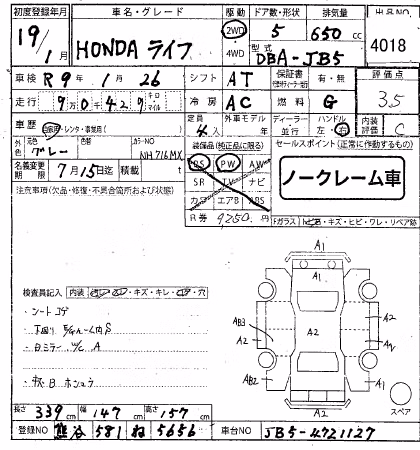 初度登録年月 車名・グレード 駆動 ドア数・形状 排気量 出品NO
19/1 HONDA ライフ 2WD 4WD 5 650 cc 4018
型式 DBA-JB5
車検 R9年1月26 シフト AT 保証書 有・無 評価点
走行 9万0429 キロ マイル 冷房 AC 燃料 G 3.5
車歴 自家用・レンタ・事業用( ) 定員 4人 外車モデル ディーラー 並行 ハンドル 左・右 内装評価 C
外色 元色 グレー 色替 カラーNO NH716MX
装備品(純正品に限る) セールスポイント(正常に動作する物)
名義変更期限 7月15日迄 PS PW AW
SR TV ナビ ノークレーム車
カワ エアB ABS
注意事項(欠品・修復・不具合箇所および状態)
R券 9250円
Fガラス
キズ・ヒビ・ワレ・リペア跡
A1
A1
AB3
A2
A2
A2
AB2
A1
A2
スペア
検査員記入 内装
キズ・キレ
穴
・シートコゲ
・下回り
S
・Bミラー
A
長さ 339cm 幅 147cm 高さ 157cm
登録NO 熊谷 581 ね 5656 車台NO JB5-4721127